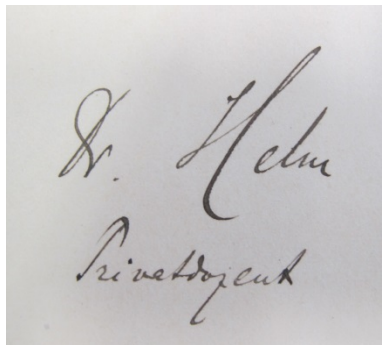 Dr. Helm
Privatdozent